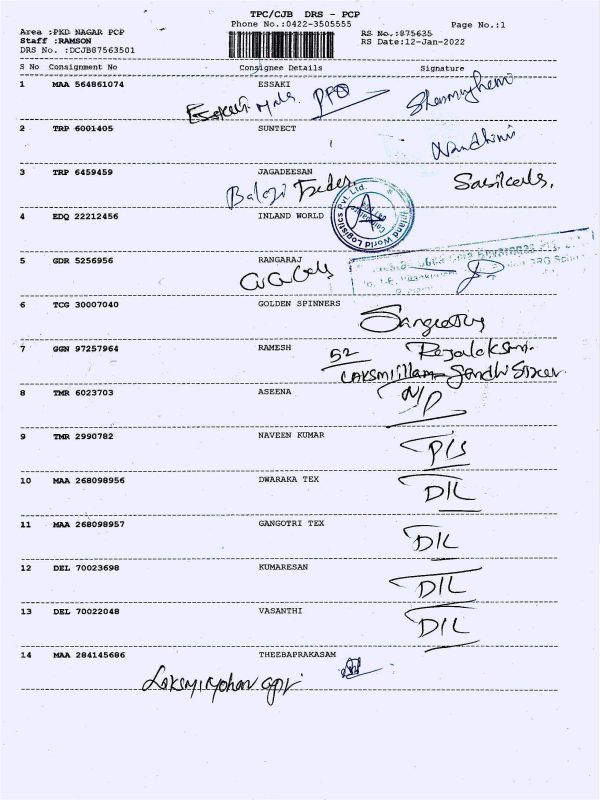 TPC/CJB DRS - PCP
Phone No.:0422-3505555
Page No.:1
Area :PKD NAGAR PCP
Staff :RAMSON
DRS No. :DCJB87563501
RS No.:875635
RS Date:12-Jan-2022
S No Consignment No Consignee Details Signature
1 MAA 564861074 ESSAKI
2 TRP 6001405 SUNTECT
Nandhini
3 TRP 6459459 JAGADEESAN
Balaji
4 EDQ 22212456 INLAND WORLD
Inland World Logistics Pvt. Ltd.
5 GDR 5256956 RANGARAJ
6 TCG 30007040 GOLDEN SPINNERS
7 GGN 97257964 RAMESH
52
8 TMR 6023703 ASEENA
N/P
9 TMR 2990782 NAVEEN KUMAR
P/S
10 MAA 268098956 DWARAKA TEX
D/L
11 MAA 268098957 GANGOTRI TEX
D/L
12 DEL 70023698 KUMARESAN
D/L
13 DEL 70022048 VASANTHI
D/L
14 MAA 284145686 THEEBAPRAKASAM